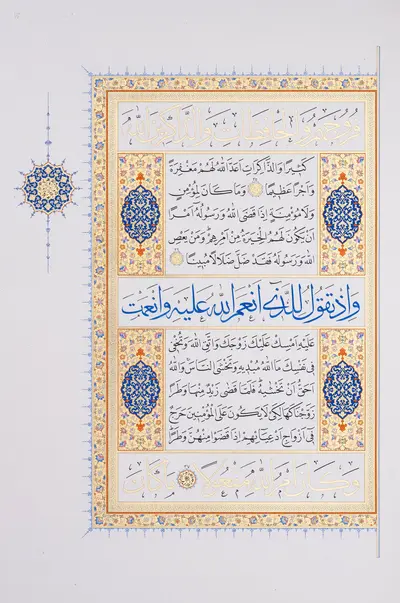 فُرُوجَهُمْ وَالْحَافِظَاتِ وَالذَّاكِرِينَ اللهَ
كَثِيرًا وَالذَّاكِرَاتِ اَعَدَّ اللهُ لَهُمْ مَغْفِرَةً
وَاَجْرًا عَظِيمًا وَمَا كَانَ لِمُؤْمِنٍ
وَلَا مُؤْمِنَةٍ اِذَا قَضَى اللهُ وَرَسُولُهُ اَمْرًا
اَنْ يَكُونَ لَهُمُ الْخِيَرَةُ مِنْ اَمْرِهِمْ وَمَنْ يَعْصِ
اللهَ وَرَسُولَهُ فَقَدْ ضَلَّ ضَلَالًا مُبِينًا
وَاِذْ تَقُولُ لِلَّذِي اَنْعَمَ اللهُ عَلَيْهِ وَاَنْعَمْتَ
عَلَيْهِ اَمْسِكْ عَلَيْكَ زَوْجَكَ وَاتَّقِ اللهَ وَتُخْفِي
فِي نَفْسِكَ مَا اللهُ مُبْدِيهِ وَتَخْشَى النَّاسَ وَاللهُ
اَحَقُّ اَنْ تَخْشَيهُ فَلَمَّا قَضَى زَيْدٌ مِنْهَا وَطَرًا
زَوَّجْنَاكَهَا لِكَيْ لَا يَكُونَ عَلَى الْمُؤْمِنِينَ حَرَجٌ
فِي اَزْوَاجِ اَدْعِيَائِهِمْ اِذَا قَضَوْا مِنْهُنَّ وَطَرًا
وَكَانَ اَمْرُ اللهِ مَفْعُولًا مَا كَانَ